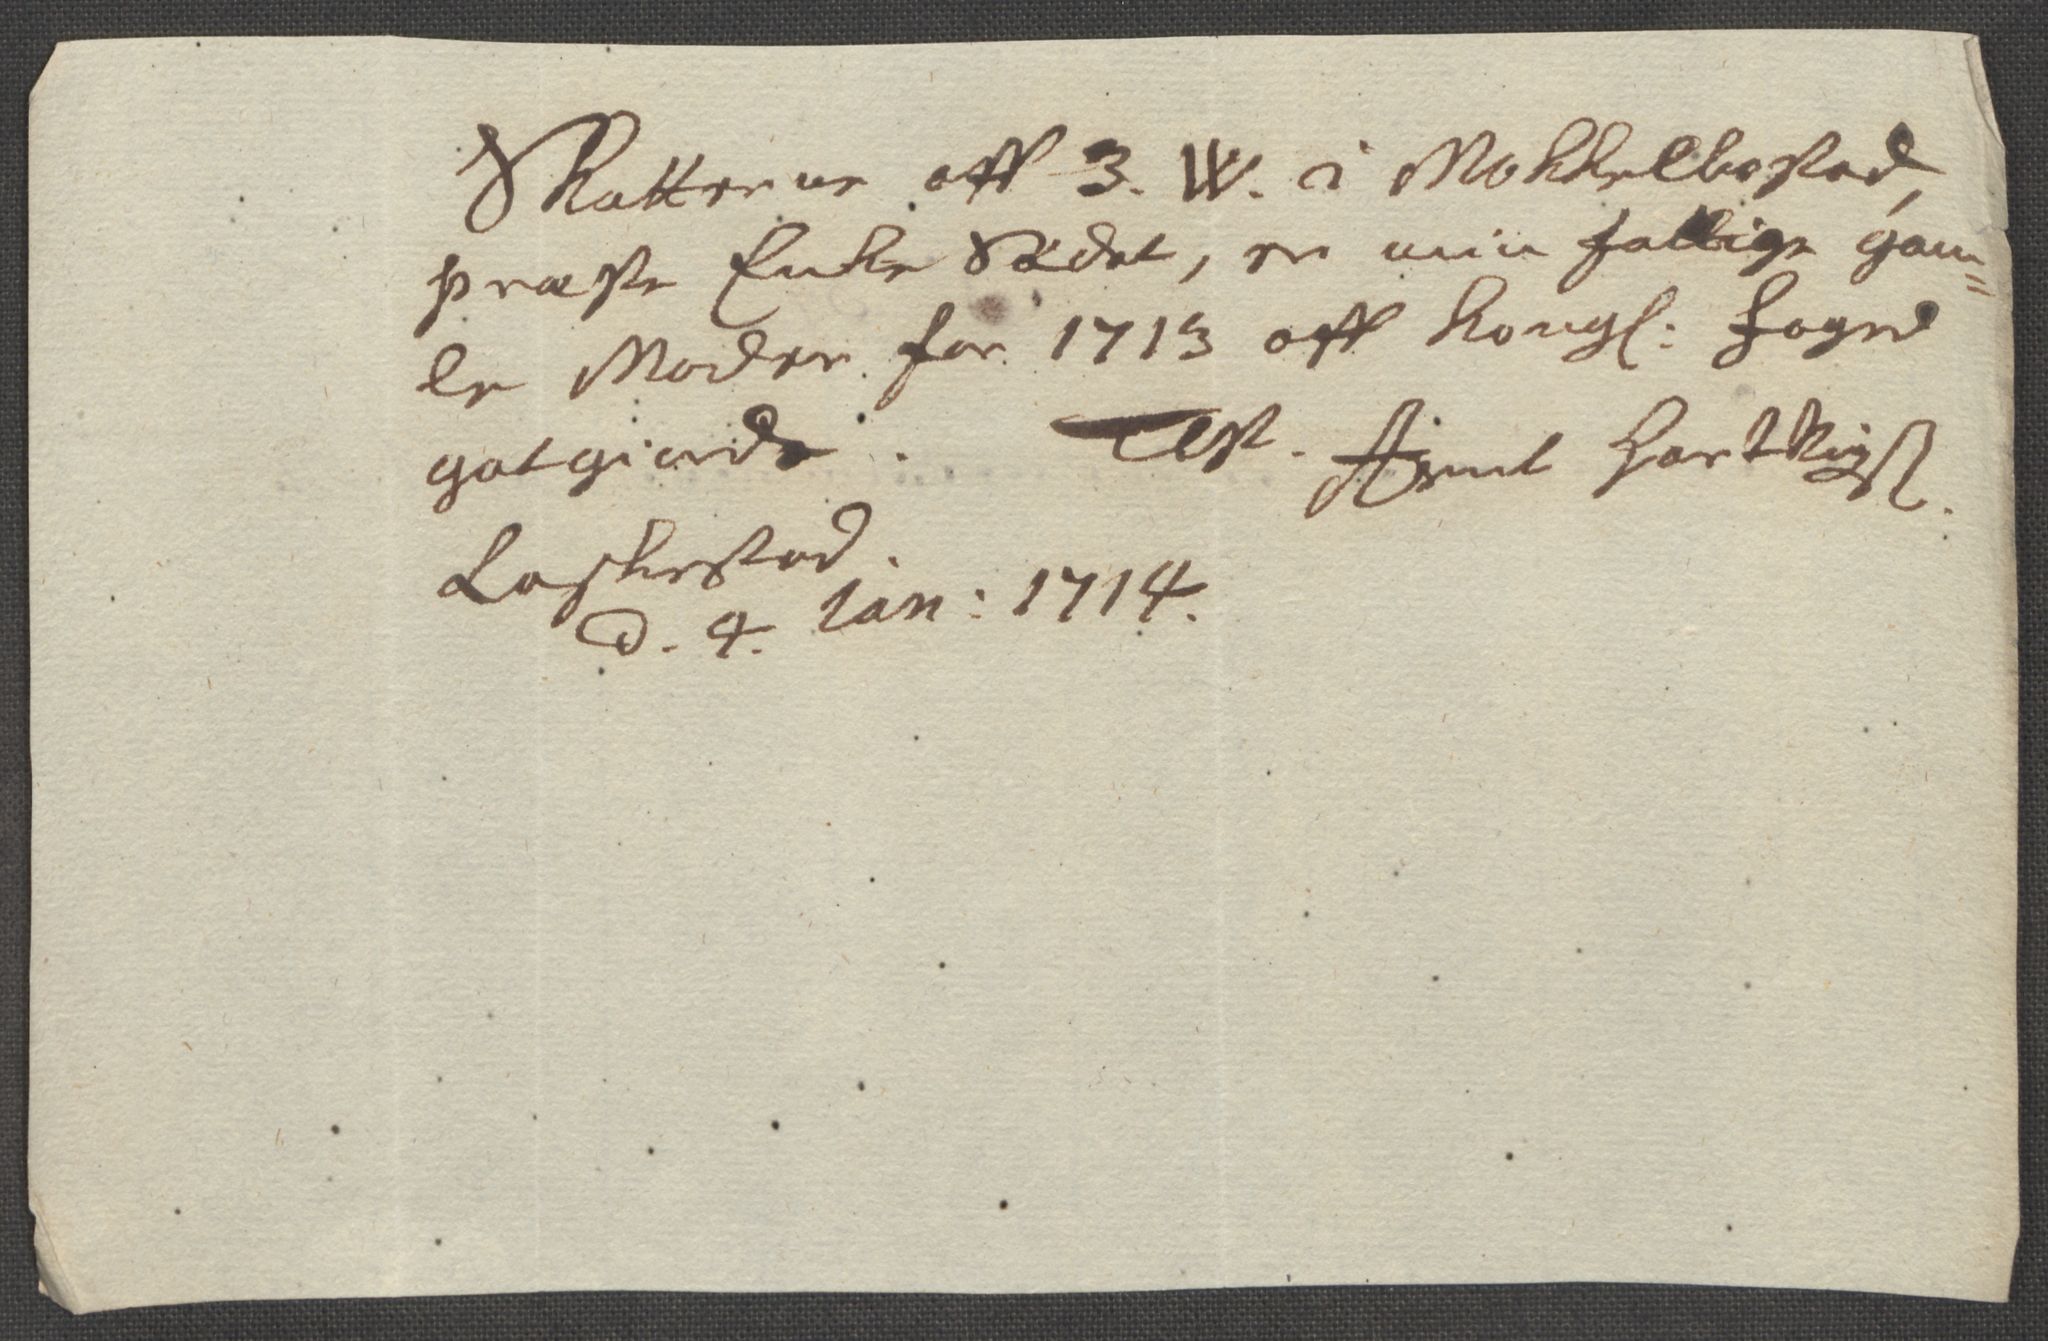 Skatterne aff 3. W. i Mokkelbostad,
præste Enke Sædet, er min fattige gam=
le Moder for 1713 aff kongl: foged
gotgiordt. Test. Arent Hartvigss.
Laskestad.
d. 4. Jan: 1714.